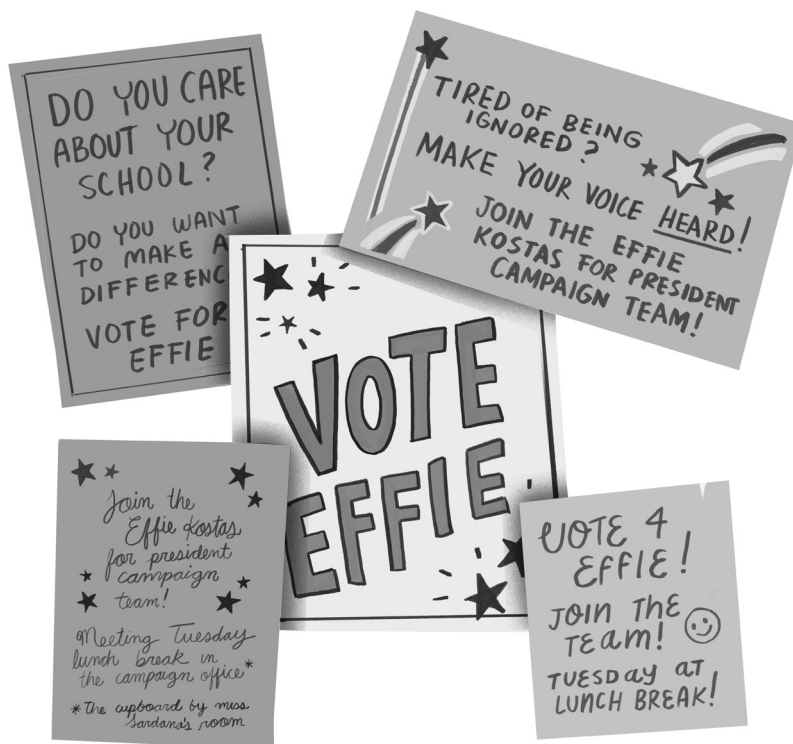 DO YOU CARE
ABOUT YOUR
SCHOOL?
DO YOU WANT
TO MAKE A
DIFFERENC
VOTE FOR
EFFIE
TIRED OF BEING
IGNORED?
MAKE YOUR VOICE HEARD!
JOIN THE EFFIE
KOSTAS FOR PRESIDENT
CAMPAIGN TEAM!
VOTE
EFFIE
Join the
Effie Kostas
for president
campaign
team!
Meeting Tuesday
lunch break in
the campaign office*
*The cupboard by miss
Sardana's room
VOTE 4
EFFIE!
JOIN THE
TEAM!
TUESDAY AT
LUNCH BREAK!